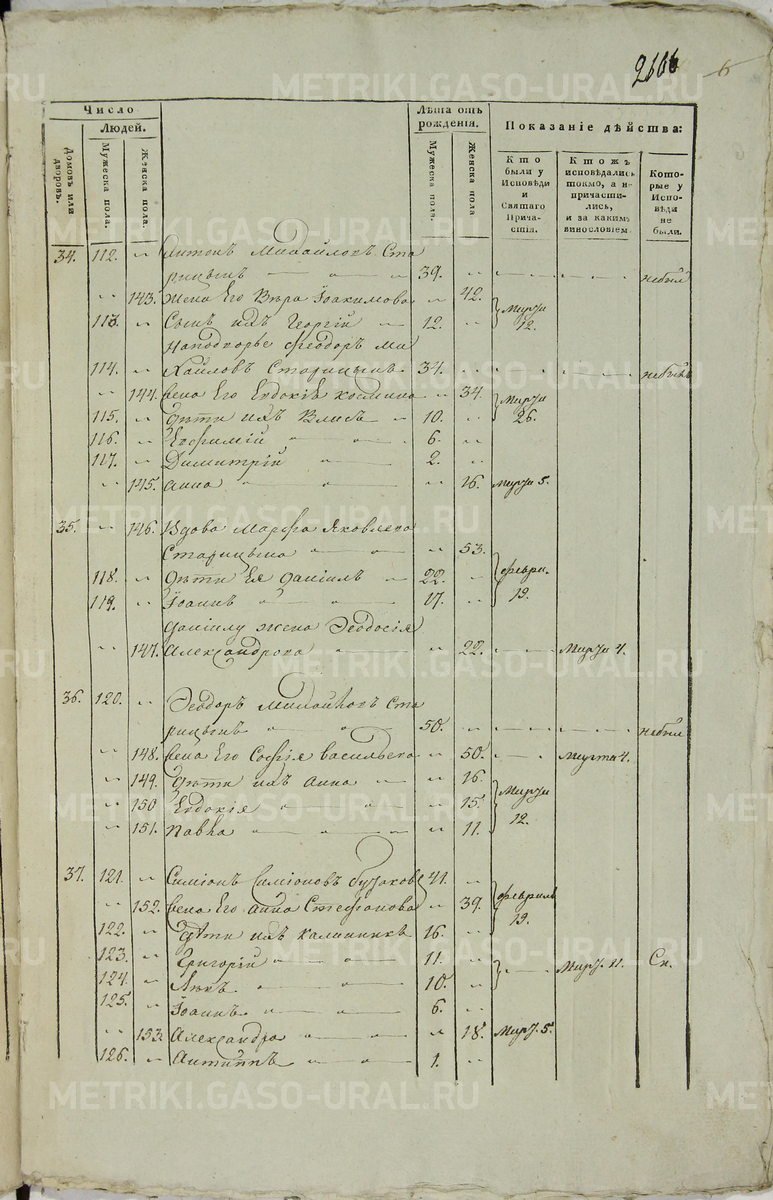 2606 6
Число
Людей.
Домовъ или дворовъ.
Мужеска пола.
Женска пола.
Лѣта отъ рожденія.
Мужеска пола.
Женска пола
Показаніе дѣйства:
Кто были у Исповѣди и Святаго Причастія.
Ктожъ исповѣдались токмо, а не причастились, и за какимъ винословіемъ.
Которые у Исповѣди не были.
34. 112. " Антонъ Михайловъ Ста
рицынъ " 39. " " " небылъ
" 143. Жена Его Вѣра Іоакимова " 42.
113. " Сынъ ихъ Георгій " 12. " Марта 12.
Наподворье Ѳеодоръ Ми
114. " хайловъ Старицынъ 34. " " " небылъ
" 144. Жена Его Евдокія Космина " 34.
115. " Дѣти ихъ Власъ " 10. " Марта 26.
116. " Евѳимій " 6. "
117. " Димитрій " 2. "
" 145. Анна " " 16. Марта 5.
35. " 146. Вдова Марѳа Яковлева
Старицына " " 53.
118. " Дѣти Ея Даніилъ " 22. " Февра. 19.
119. " Іоаннъ " 17. "
Даніилу жена Ѳеодосія
" 147. Александрова " " 22. " Марта 4.
36. 120. " Ѳеодоръ Михайловъ Ста
рицынъ " 50. " " " небылъ
" 148. Жена Его Софія Васильева " 50. " Марта 4.
" 149. Дѣти ихъ Анна " " 16.
" 150 Евдокія " " 15. Марта 12.
" 151. Павла " " 11.
37. 121. " Симіонъ Симіоновъ 41. "
" 152. Жена Его Анна Стефанова " 39. Февраля 19.
122. " Дѣти ихъ Калинникъ 16. "
123. " Григорій " 11. " " Мар. 11. Ск.
124. " " 10. "
125. " Іоаннъ " 6. "
" 153. Александра " " 18. Мар. 5.
126. " Антиппъ " 1. "
METRIKI.GASO-URAL.RU